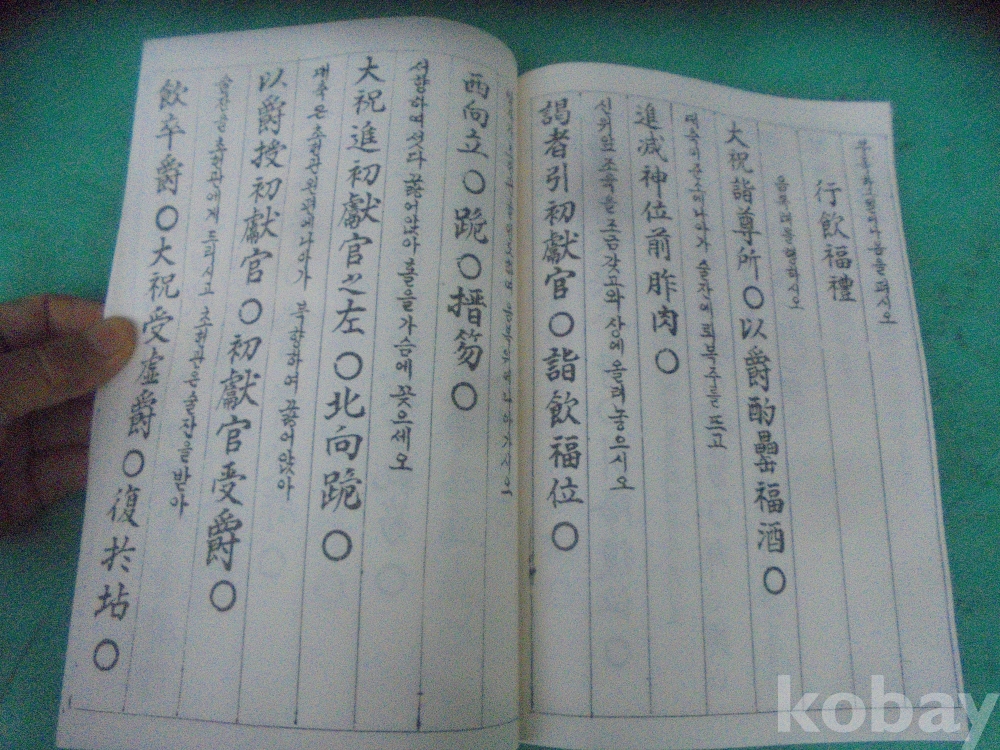 몸을 펴시오
行飮福禮
음복례를 행하시오
大祝詣尊所〇以爵酌罍福酒〇
대축이 준소에 나아가 술잔에 뢰복주를 뜨고
進减神位前胙肉〇
신위앞 조육을 조금 갖고와 상에 올려놓으시오
謁者引初獻官〇詣飮福位〇
음복위에 나아가시오
西向立〇跪〇搢笏〇
서향하여 섯다 꿇어앉아 홀을 가슴에 꽂으세오
大祝進初獻官之左〇北向跪〇
대축은 초헌관 왼편에 나아가 북향하여 꿇어앉아
以爵授初獻官〇初獻官受爵〇
술잔을 초헌관에게 드리시고 초헌관은 술잔을 받아
飮卒爵〇大祝受虛爵〇復於坫〇
kobay